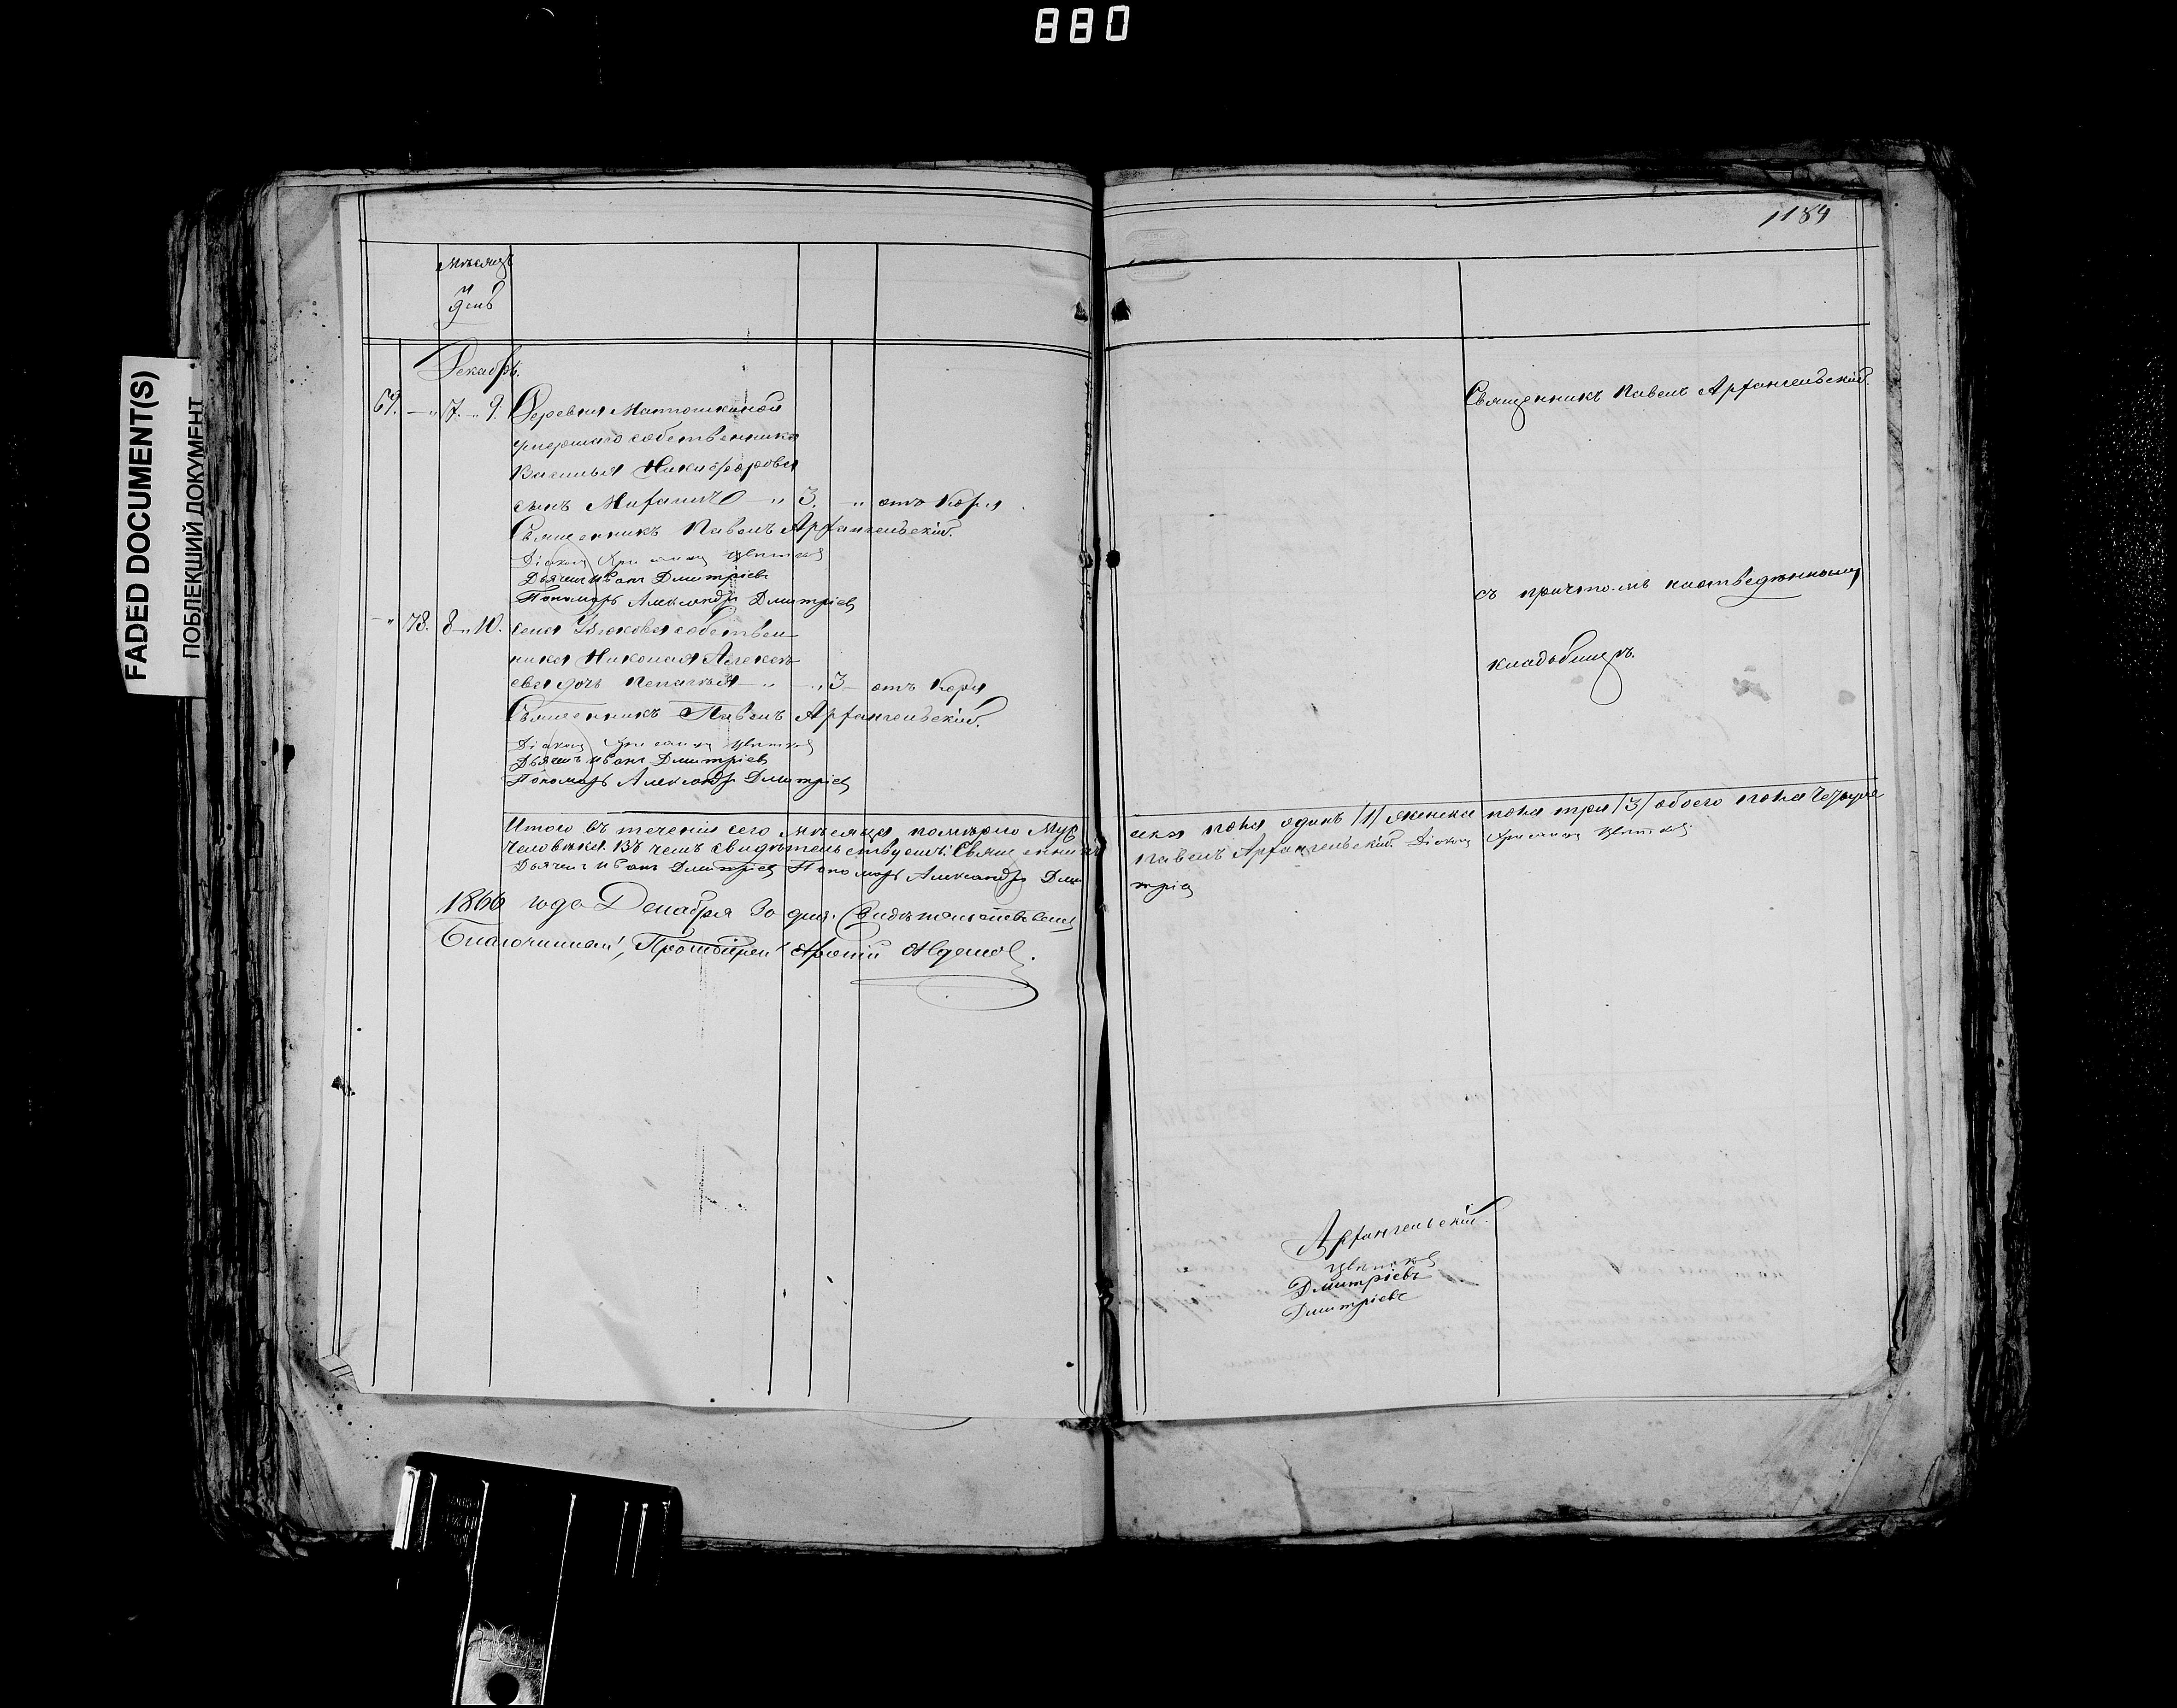 880
FADED DOCUMENT(S)
ПОБЛЕКШИЙ ДОКУМЕНТ
1184
Мѣсяцъ
и
день
Декабрь.
69. — " 7. " 9. Деревни Матюшкиной
умершаго собственника
Василья Никифорова
сынъ Михаилъ — " 3. " отъ Коря
Священникъ Павелъ Архангельскій.
Діаконъ Цвѣтковъ
Дьячекъ Иванъ Дмитріевъ
Пономарь Александръ Дмитріевъ
— " 78. 8 " 10. села собствен
ника Николая Алексѣ
ева дочь Пелагѣя — " " 3 — отъ Коря
Священникъ Павелъ Архангельскій.
Діаконъ Цвѣтковъ
Дьячекъ Иванъ Дмитріевъ
Пономарь Александръ Дмитріевъ
Священникъ Павелъ Архангельскій.
съ причтомъ
кладбищѣ.
Итого въ теченіи сего мѣсяца померло Муж
ска пола одинъ /1/ женска пола три /3/ обоего пола Четыре
Человѣка. Въ чемъ свидѣтельствуемъ: Священникъ
Павелъ Архангельскій. Діаконъ Цвѣтковъ
Дьячекъ Иванъ Дмитріевъ Пономарь Александръ Дми
тріевъ
1866 года Декабря 30 дня. Свидѣтельствовалъ
Благочинный, Протоіерей
Архангельскій.
Цвѣтковъ
Дмитріевъ
Дмитріевъ